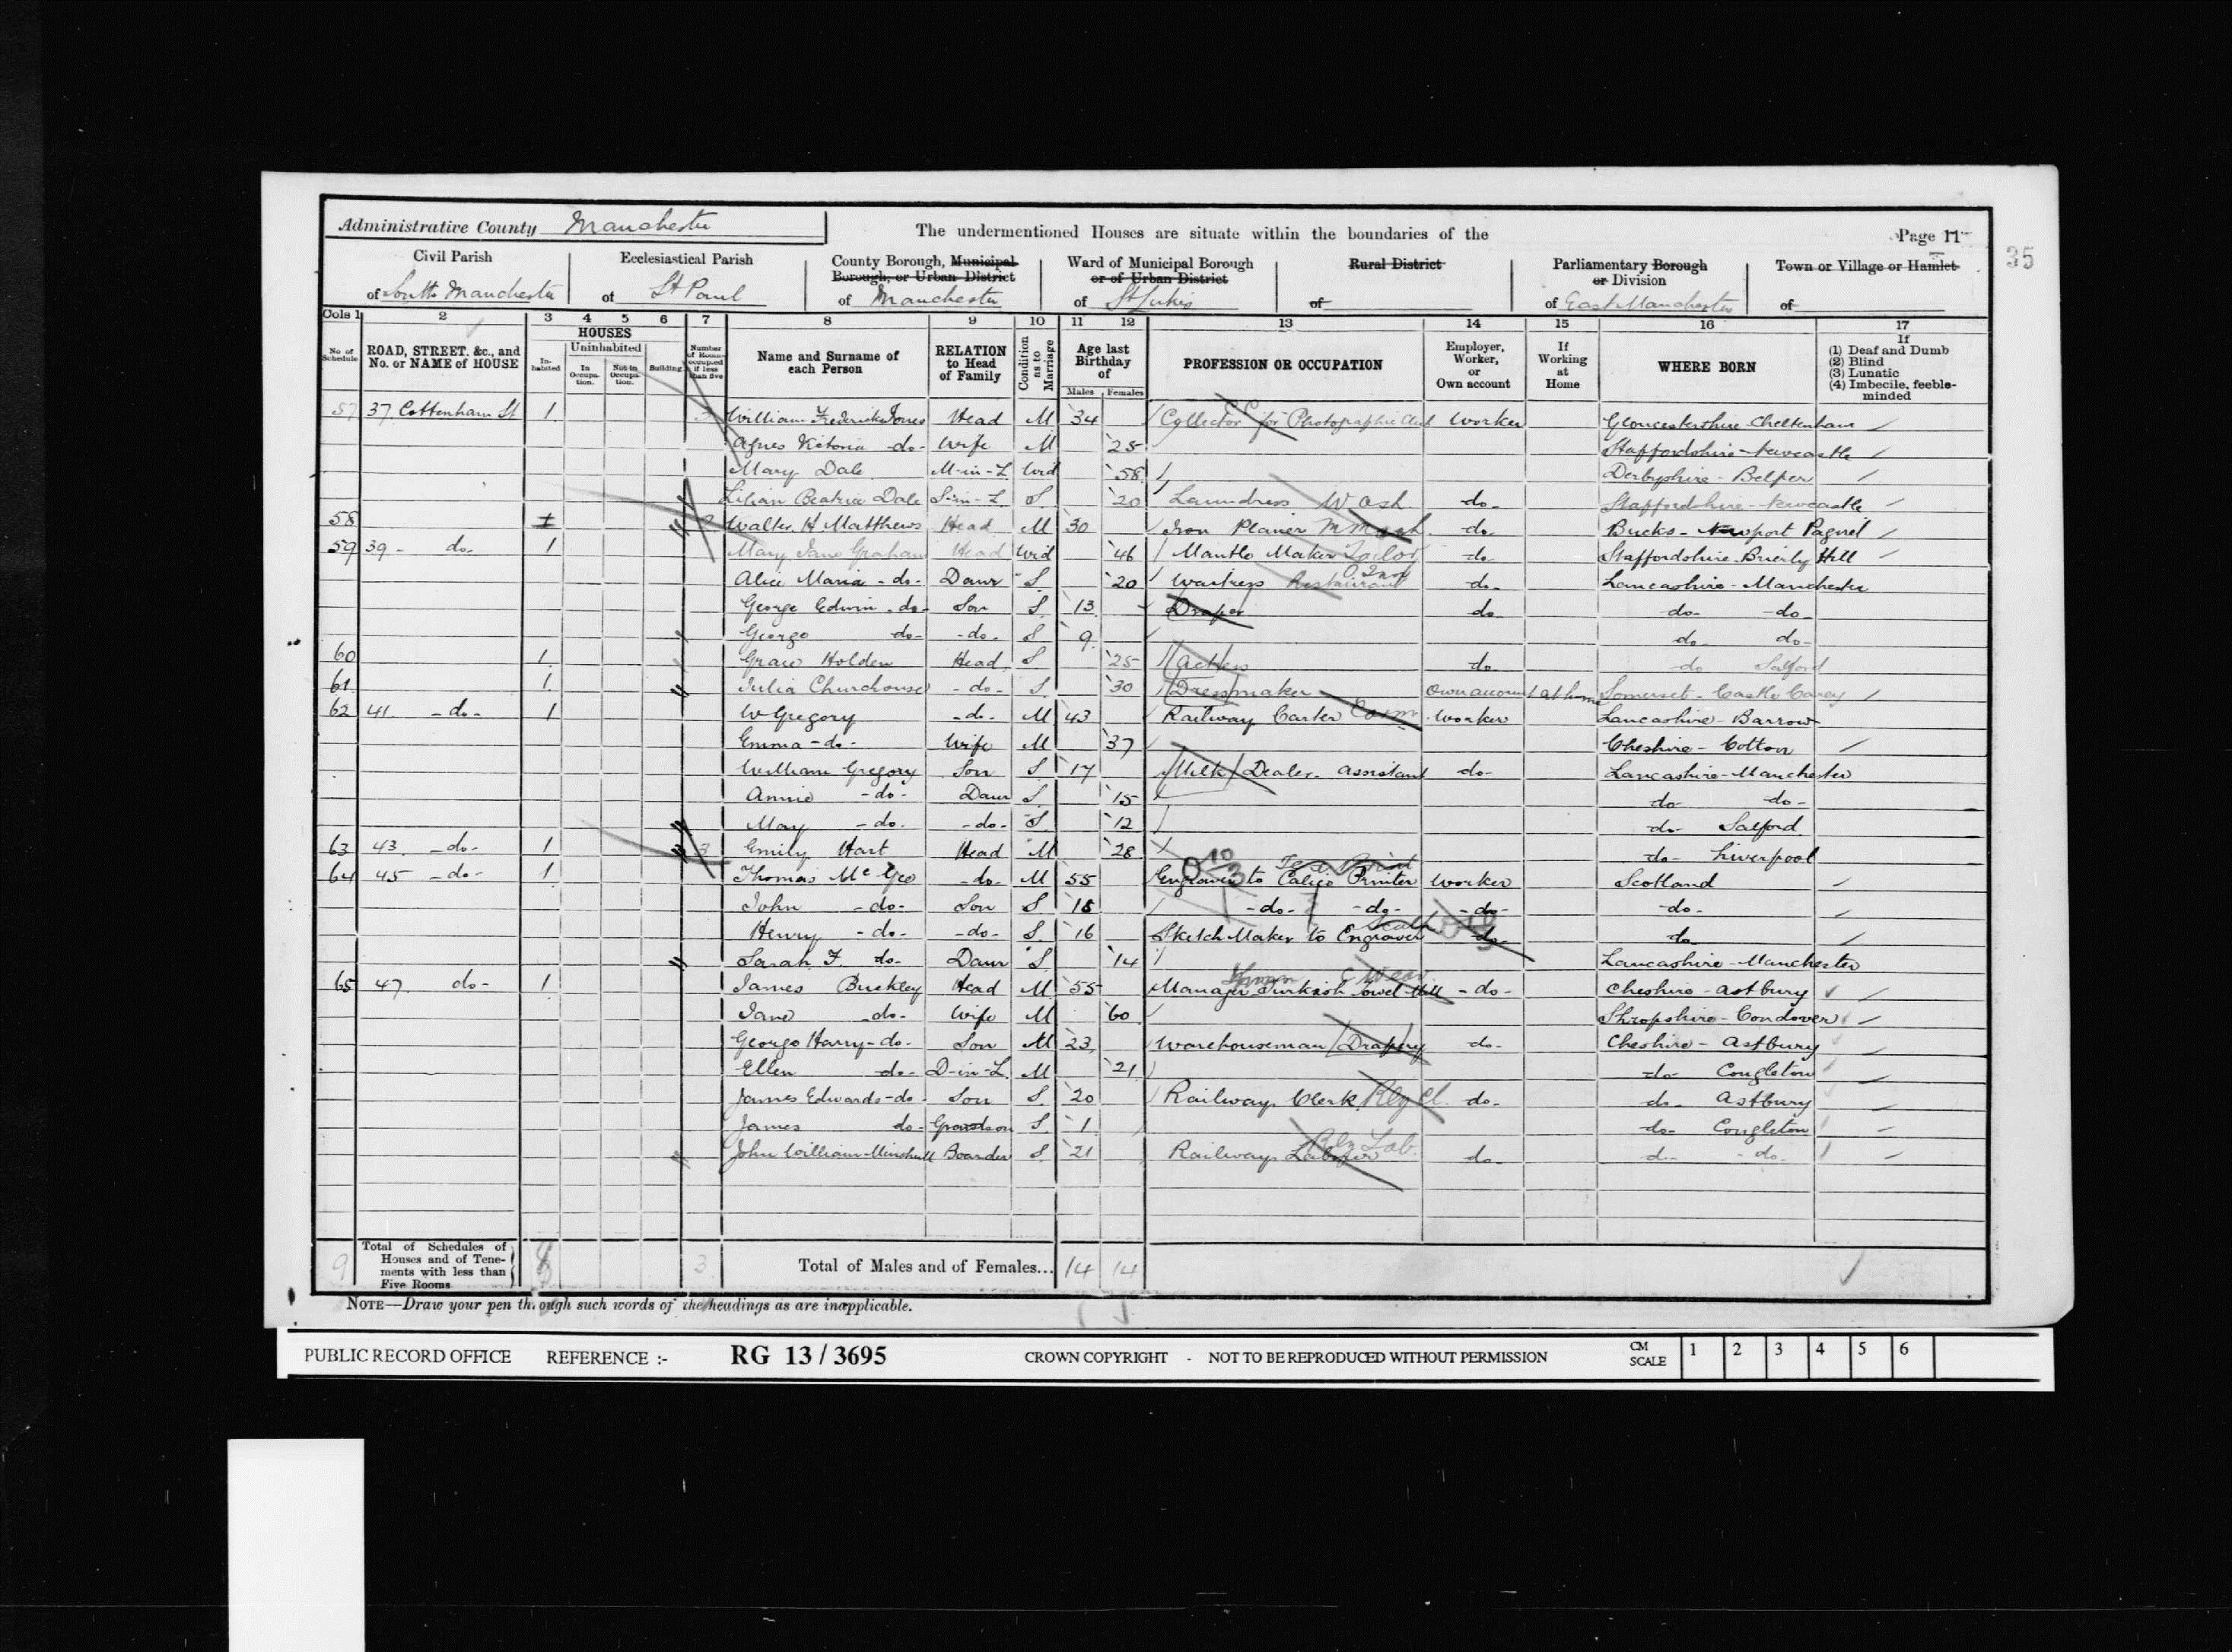 Administrative County Manchester
The undermentioned Houses are situate within the boundaries of the
Page 11
35
Civil Parish
of South Manchester
Ecclesiastical Parish
of St Paul
County Borough, Municipal
Borough, or Urban District
of Manchester
Ward of Municipal Borough
or of Urban District
of St Lukes
Rural District
of
Parliamentary Borough
or Division
of East Manchester
Town or Village or Hamlet
of
Cols 1 2 3 4 5 6 7 8 9 10 11 12 13 14 15 16 17
No of Schedule
ROAD, STREET, &c., and No. or NAME of HOUSE
HOUSES
In-habited
Uninhabited
In Occupa-tion.
Not in Occupa-tion.
Building
Number of Rooms occupied if less than five
Name and Surname of each Person
RELATION to Head of Family
Condition as to Marriage
Age last Birthday of
Males Females
PROFESSION OR OCCUPATION
Employer, Worker, or Own account
If Working at Home
WHERE BORN
If
(1) Deaf and Dumb
(2) Blind
(3) Lunatic
(4) Imbecile, feeble-minded
57 37 Cottenham St 1 3 William Frederick Jones Head M 34 Collector for Photographic Worker Gloucestershire Cheltenham
Agnes Victoria -do- Wife M 25 Staffordshire - Newcastle
Mary Dale M-in-L Wid 58 Derbyshire - Belper
Lilian Beatrice Dale S-in-L S 20 Laundress Wash -do- Staffordshire - Newcastle
58 1 Walter H Matthews Head M 30 Iron Planer -do- Bucks - Newport Pagnel
59 39 - do- 1 Mary Jane Graham Head Wid 46 Mantle Maker Tailor do- Staffordshire Brierly Hill
Alice Maria -do- Daur S 20 Waitress Restaurant do- Lancashire - Manchester
George Edwin -do- Son S 13 Draper do -do- -do-
George do- -do- S 9 do- do-
60 1 Grace Holden Head S 25 Actress do- -do Salford
61 1 Julia Churchouse -do- S 30 Dressmaker Own account at home Somerset - Castle Carey
62 41 -do- 1 W Gregory -do- M 43 Railway Carter Worker Lancashire - Barrow
Emma -do- Wife M 37 Cheshire - Cotton
William Gregory Son S 17 Milk Dealer assistant do- Lancashire - Manchester
Annie -do- Daur S 15 do- do-
May -do- -do- S 12 do- Salford
63 43 -do- 1 3 Emily Hart Head M 28 do- Liverpool
64 45 -do- 1 Thomas McGeo -do- M 55 Engraver to Calico Printer Worker Scotland
John -do- Son S 18 -do- -do- -do- -do-
Henry -do- -do- S 16 Sketch Maker to Engraver do- do-
Sarah F. do- Daur S 14 Lancashire - Manchester
65 47 do- 1 James Buckley Head M 55 Manager Turkish Towel Mill -do- Cheshire - Astbury
Jane -do- Wife M 60 Shropshire - Condover
George Harry -do- Son M 23 Warehouseman Drapery do- Cheshire - Astbury
Ellen do- D-in-L M 21 do- Congleton
James Edwards -do- Son S 20 Railway Clerk Rly Cl. do- do- Astbury
James do- Grandson S 1 do- Congleton
John William Minshull Boarder S 21 Railways Labourer Rly Lab. do- do- do.
9 Total of Schedules of Houses and of Tene-ments with less than Five Rooms 3 Total of Males and of Females... 14 14
NOTE—Draw your pen through such words of the headings as are inapplicable.
PUBLIC RECORD OFFICE REFERENCE :- RG 13 / 3695 CROWN COPYRIGHT - NOT TO BE REPRODUCED WITHOUT PERMISSION CM SCALE 1 2 3 4 5 6